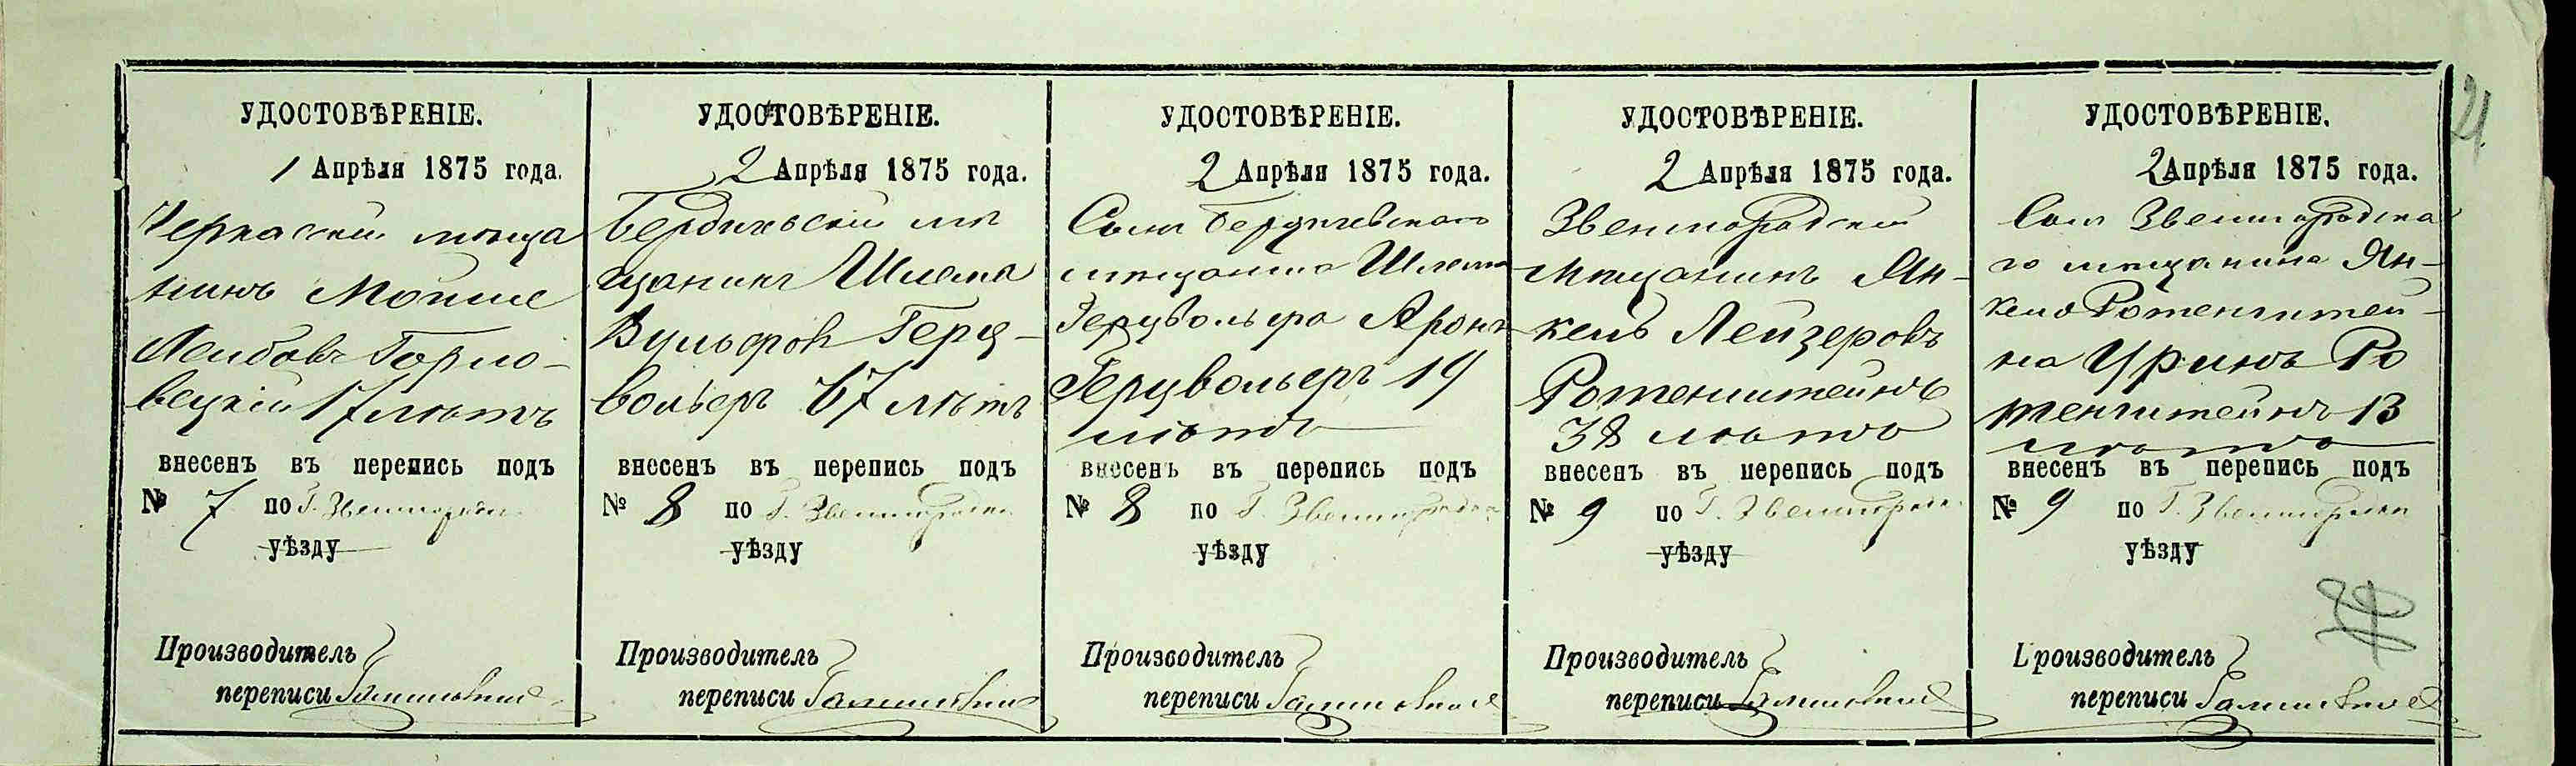 21
УДОСТОВѢРЕНІЕ.
1 Апрѣля 1875 года.
Черкаскій мѣща
нинъ Мойше
Лейбовъ Горло-
вецкій 17 лѣтъ
внесенъ въ перепись подъ
№ 7 по Г. Звенигородкѣ
уѣзду
Производитель
переписи
УДОСТОВѢРЕНІЕ.
2 Апрѣля 1875 года.
Бердичевскій мѣ
щанинъ Шлема
Вульфов Герц-
вольфъ 67 лѣтъ
внесенъ въ перепись подъ
№ 8 по Г. Звенигородкѣ
уѣзду
Производитель
переписи
УДОСТОВѢРЕНІЕ.
2 Апрѣля 1875 года.
Сынъ Бердичевскаго
мѣщанина Шлемы
Герцвольфа Аронъ
Герцвольфъ 19
лѣтъ
внесенъ въ перепись подъ
№ 8 по Г. Звенигородкѣ
уѣзду
Производитель
переписи
УДОСТОВѢРЕНІЕ.
2 Апрѣля 1875 года.
Звенигородскій
мѣщанинъ Ян-
кель Лейзеровъ
Ротенштейнъ
38 лѣтъ
внесенъ въ перепись подъ
№ 9 по Г. Звенигородкѣ
уѣзду
Производитель
переписи
УДОСТОВѢРЕНІЕ.
2 Апрѣля 1875 года.
Сынъ Звенигородска
го мѣщанина Ян-
келя Ротенштей-
на Уринъ Ро
тенштейнъ 13
лѣтъ
внесенъ въ перепись подъ
№ 9 по Г. Звенигородкѣ
уѣзду
Производитель
переписи